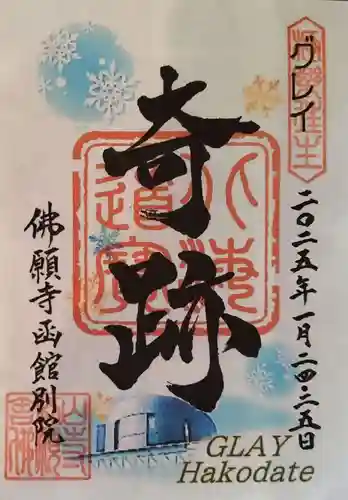 グレイ
二〇二五年一月二四・二五日
奇跡
佛願寺函館別院
GLAY
Hakodate